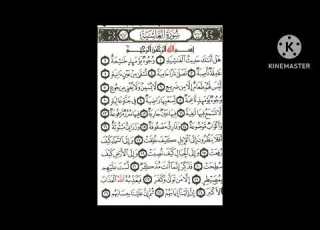 سُورَةُ الْغَاشِيَةِ
بِسْمِ اللَّهِ الرَّحْمَٰنِ الرَّحِيمِ
هَلْ أَتَىٰكَ حَدِيثُ الْغَٰشِيَةِ وُجُوهٌ يَوْمَئِذٍ خَٰشِعَةٌ
عَامِلَةٌ نَّاصِبَةٌ تَصْلَىٰ نَارًا حَامِيَةً تُسْقَىٰ مِنْ عَيْنٍ ءَانِيَةٍ
لَّيْسَ لَهُمْ طَعَامٌ إِلَّا مِن ضَرِيعٍ لَّا يُسْمِنُ وَلَا يُغْنِي مِن جُوعٍ
وُجُوهٌ يَوْمَئِذٍ نَّاعِمَةٌ لِّسَعْيِهَا رَاضِيَةٌ فِي جَنَّةٍ عَالِيَةٍ
لَّا تَسْمَعُ فِيهَا لَٰغِيَةً فِيهَا عَيْنٌ جَارِيَةٌ فِيهَا سُرُرٌ مَّرْفُوعَةٌ
وَأَكْوَابٌ مَّوْضُوعَةٌ وَنَمَارِقُ مَصْفُوفَةٌ وَزَرَابِيُّ مَبْثُوثَةٌ
أَفَلَا يَنظُرُونَ إِلَى الْإِبِلِ كَيْفَ خُلِقَتْ وَإِلَى السَّمَاءِ كَيْفَ
رُفِعَتْ وَإِلَى الْجِبَالِ كَيْفَ نُصِبَتْ وَإِلَى الْأَرْضِ كَيْفَ
سُطِحَتْ فَذَكِّرْ إِنَّمَا أَنتَ مُذَكِّرٌ لَّسْتَ عَلَيْهِم
بِمُصَيْطِرٍ إِلَّا مَن تَوَلَّىٰ وَكَفَرَ فَيُعَذِّبُهُ اللَّهُ الْعَذَابَ
الْأَكْبَرَ إِنَّ إِلَيْنَا إِيَابَهُمْ ثُمَّ إِنَّ عَلَيْنَا حِسَابَهُم
KINEMASTER